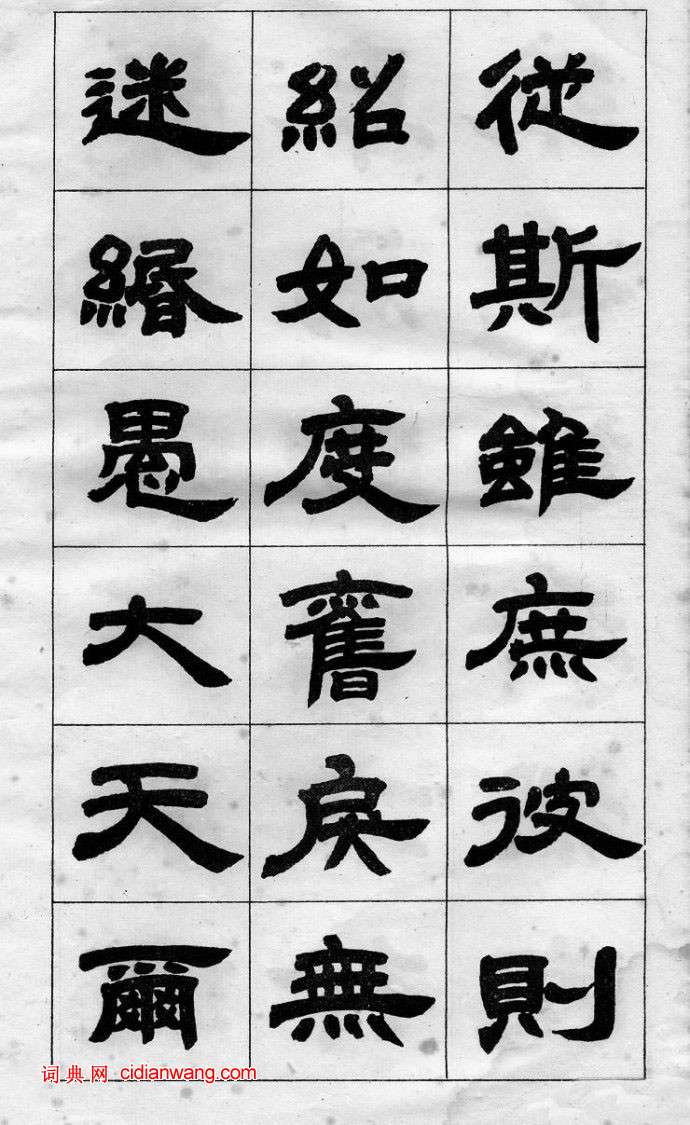 從斯雖庶彼則
紹如度舊戾無
迷緡愚大天爾
词典网 cidianwang.com